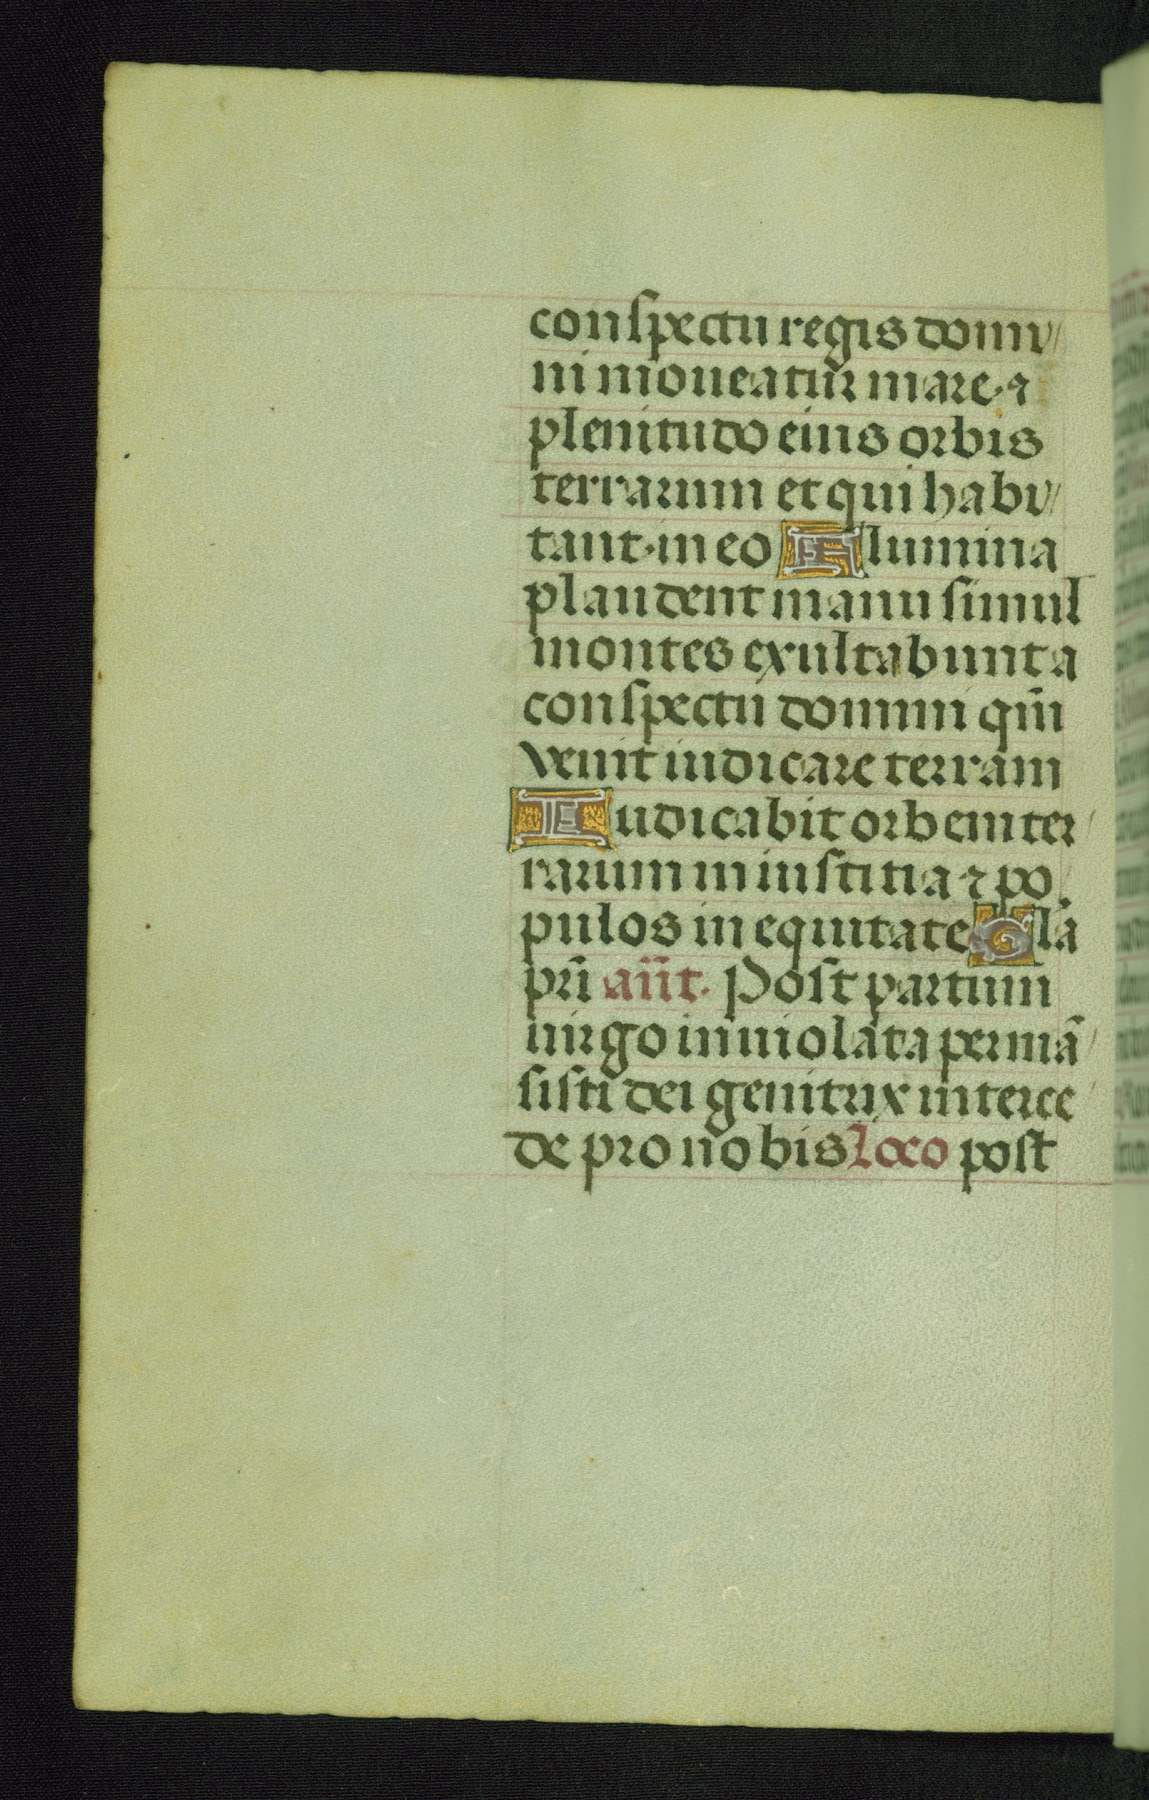 conspectu regis domi/
ni moueatur mare ⁊
plenitudo eius orbis
terrarum et qui habi/
tant in eo Flumina
plaudent manu simul
montes exultabunt a
conspectu domini qm̄
venit iudicare terram
Iudicabit orbem ter/
rarum in iustitia ⁊ po/
pulos in equitate Glā
pr̄i an̄t. Post partum
uirgo inuiolata permā/
sisti dei genitrix interce/
de pro nobis Loco post